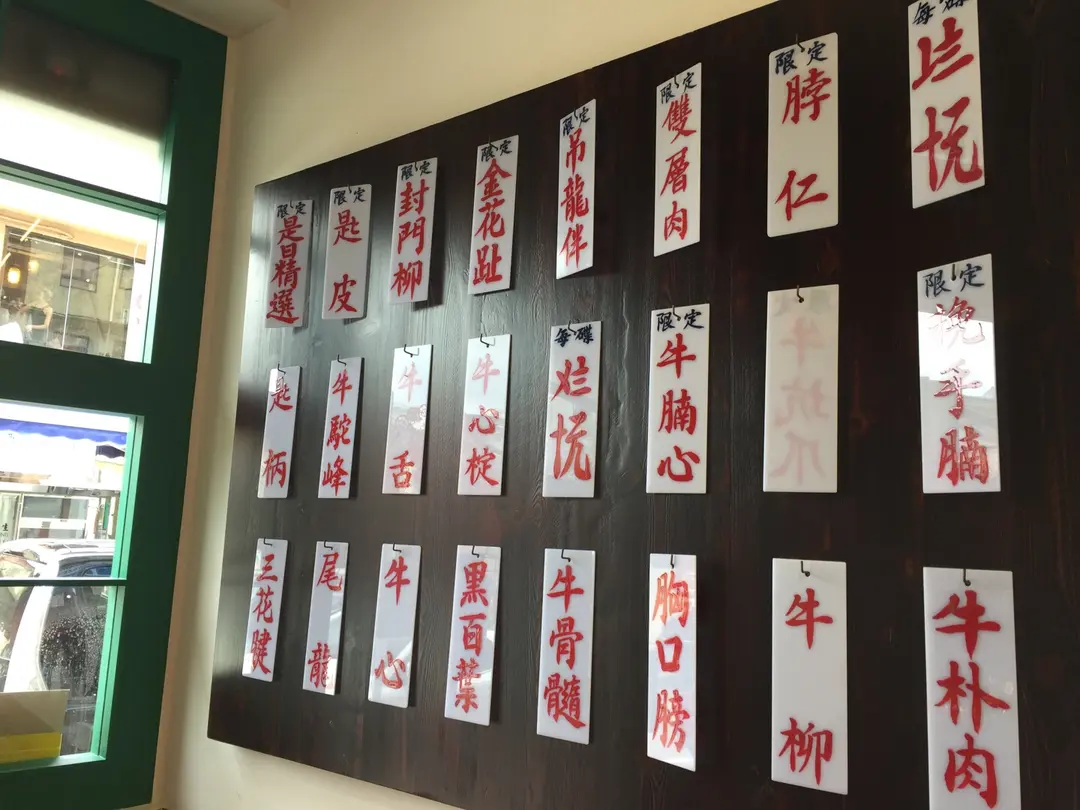 限定
是日精選
限定
匙皮
限定
封門柳
限定
金花趾
限定
吊龍伴
限定
雙層肉
限定
脖仁
每碟
匙柄
牛駝峰
牛舌
牛心椗
每碟
限定
牛腩心
牛坑
限定
挽手腩
三花腱
尾龍
牛心
黑百葉
牛骨髓
胸口膀
牛柳
牛朴肉